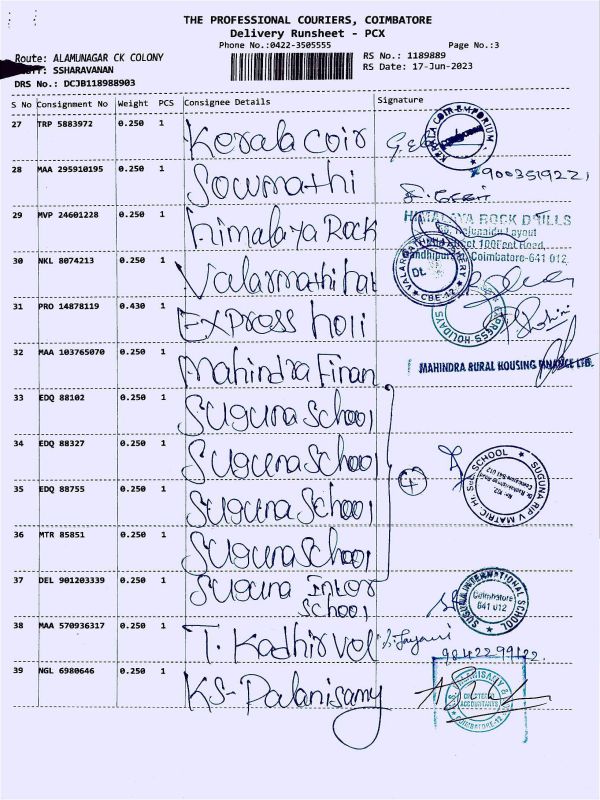 THE PROFESSIONAL COURIERS, COIMBATORE
Delivery Runsheet - PCX
Phone No.:0422-3505555 Page No.:3
Route: ALAMUNAGAR CK COLONY RS No.: 1189889
SSHARAVANAN RS Date: 17-Jun-2023
DRS No.: DCJB118988903
S No Consignment No Weight PCS Consignee Details Signature
27 TRP 5883972 0.250 1 Kerala Coir
KERALA COIR EMPORIUM
28 MAA 295910195 0.250 1 Sowmathi
29 MVP 24601228 0.250 1 Himalaya Rock
HIMALAYA ROCK DRILLS
Layout
Street 100Feet Road,
Gandhipuram, Coimbatore-641 012
30 NKL 8074213 0.250 1 Valarmathi hat
CBE-12
31 PRO 14878119 0.430 1 Express holi
EXPRESS HOLIDAYS
32 MAA 103765070 0.250 1 Mahindra Finan
MAHINDRA RURAL HOUSING FINANCE LTD.
33 EDQ 88102 0.250 1 Suguna School
34 EDQ 88327 0.250 1 Suguna School
35 EDQ 88755 0.250 1 Suguna School
4
SUGUNA RIP V MATRIC Hr. Sec. SCHOOL
36 MTR 85851 0.250 1 Suguna School
37 DEL 901203339 0.250 1 Suguna Inter
School
SUGUNA INTERNATIONAL SCHOOL
Coimbatore
641 012
38 MAA 570936317 0.250 1 T. Kadhirvel
9842299122
39 NGL 6980646 0.250 1 KS-Palanisamy
CHARTERED
ACCOUNTANTS
COIMBATORE-12